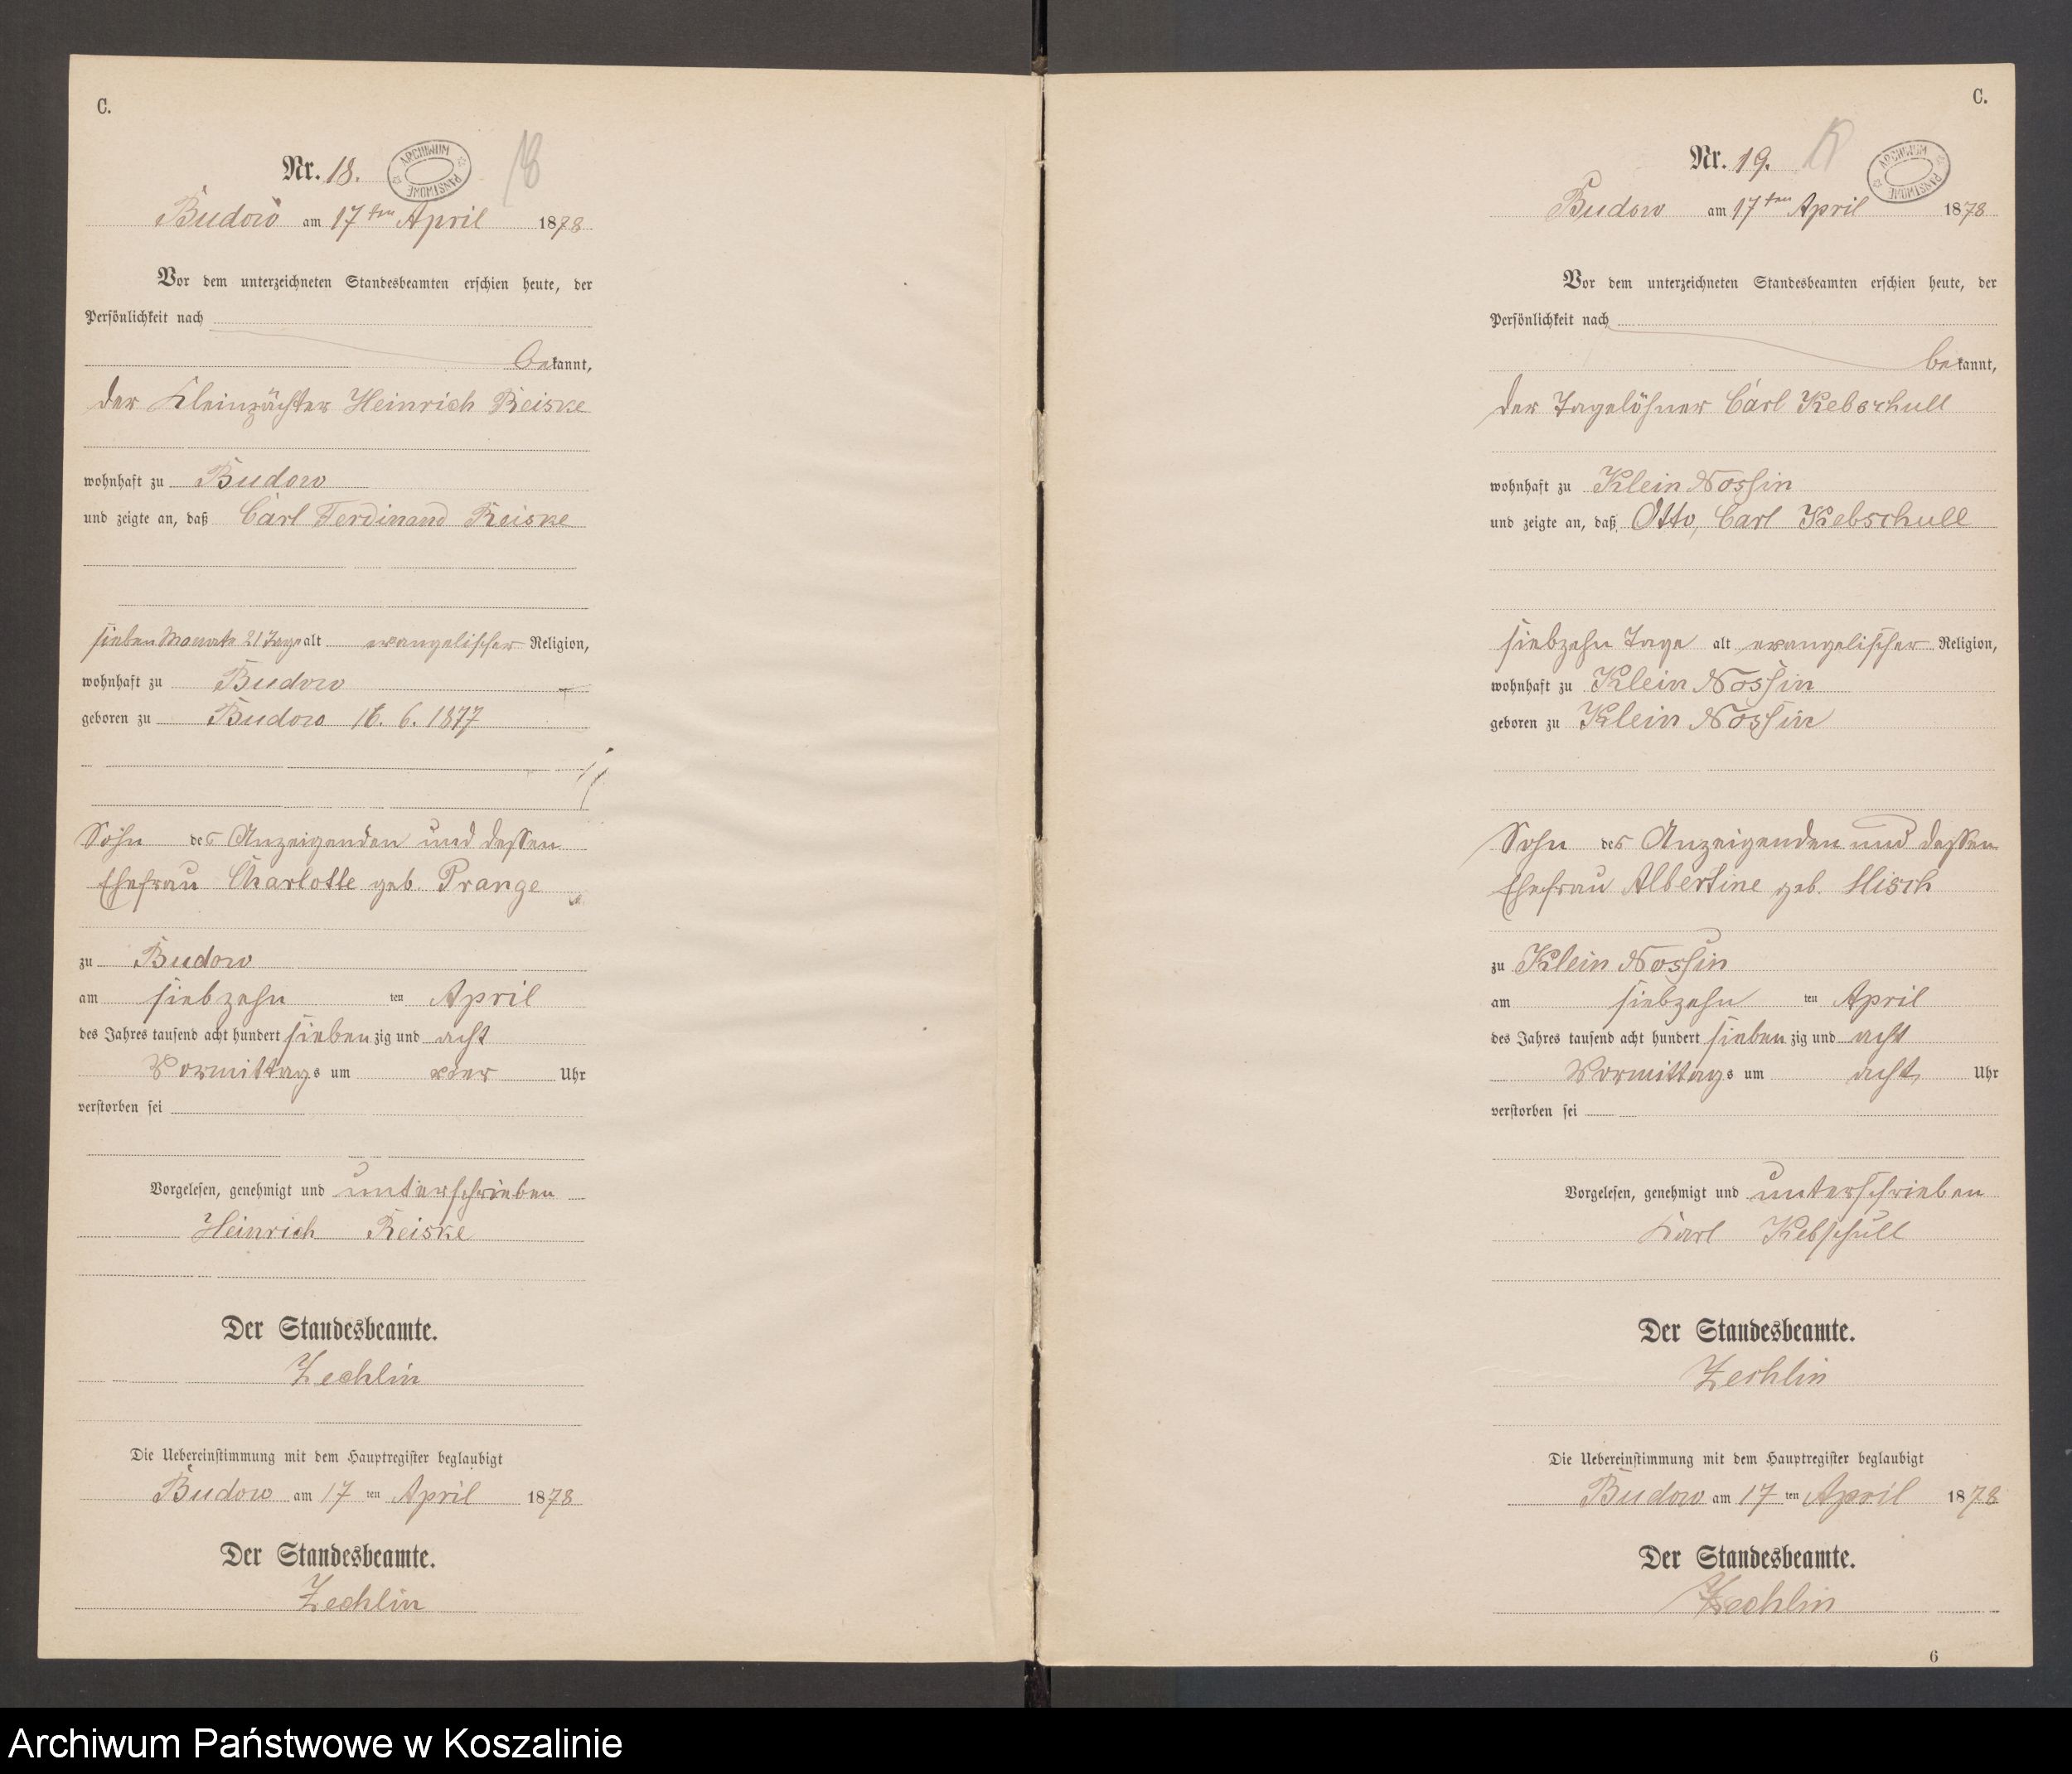 C.
Nr. 18.
ARCHIWUM PAŃSTWOWE
18
Budow am 17ten April 1878
Vor dem unterzeichneten Standesbeamten erschien heute, der
Persönlichkeit nach
bekannt,
der Kleinpächter Heinrich Reiske
wohnhaft zu Budow
und zeigte an, daß Carl Ferdinand Reiske
sieben Monate 21 Tage alt evangelischer Religion,
wohnhaft zu Budow
geboren zu Budow 16. 6. 1877
Sohn des Anzeigenden und dessen
Ehefrau Charlotte geb. Prange
zu Budow
am siebzehn ten April
des Jahres tausend acht hundert siebenzig und acht
Vormittags um vier Uhr
verstorben sei
Vorgelesen, genehmigt und unterschrieben
Heinrich Reiske
Der Standesbeamte.
Zechlin
Die Uebereinstimmung mit dem Hauptregister beglaubigt
Budow am 17 ten April 1878
Der Standesbeamte.
Zechlin
C.
Nr. 19.
ARCHIWUM PAŃSTWOWE
Budow am 17ten April 1878
Vor dem unterzeichneten Standesbeamten erschien heute, der
Persönlichkeit nach
bekannt,
der Tagelöhner Carl Kebschull
wohnhaft zu Klein Nossin
und zeigte an, daß Otto, Carl Kebschull
siebzehn Tage alt evangelischer Religion,
wohnhaft zu Klein Nossin
geboren zu Klein Nossin
Sohn des Anzeigenden und dessen
Ehefrau Albertine geb. Misch
zu Klein Nossin
am siebzehn ten April
des Jahres tausend acht hundert siebenzig und acht
Vormittags um acht Uhr
verstorben sei
Vorgelesen, genehmigt und unterschrieben
Karl Kebschull
Der Standesbeamte.
Zechlin
Die Uebereinstimmung mit dem Hauptregister beglaubigt
Budow am 17 ten April 1878
Der Standesbeamte.
Zechlin
6
Archiwum Państwowe w Koszalinie